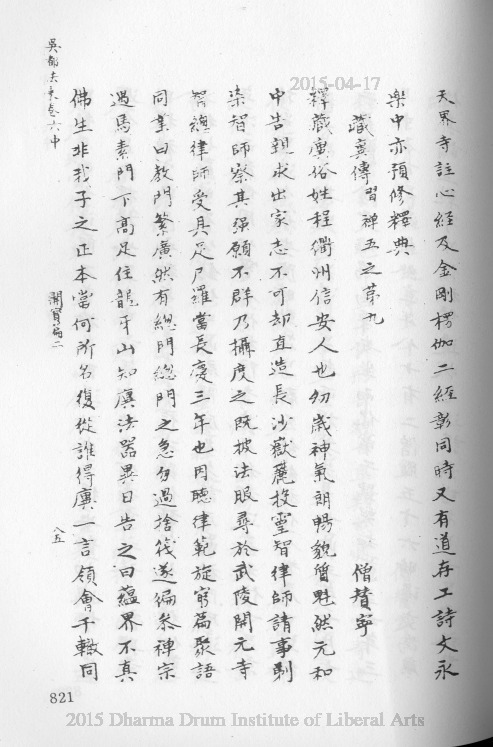 天界寺註心經及金剛楞伽二經彰同時又有道存工詩文永
樂中亦預修釋典
藏廙傳習禪五之第九 僧贊寧
釋藏廙俗姓程衢州信安人也幼歲神氣朗暢貌質魁然元和
中告親求出家志不可却直造長沙嶽麓投靈智律師請事剃
染智師察其强願不群乃攝度之既披法服尋於武陵開元寺
智總律師受具足尸羅當長慶三年也因聽律範旋窮篇聚語
同業曰教門繁廣然有總門總門之急勿過捨筏遂徧參禪宗
遇馬素門下高足住龍牙山知廙法器異日告之曰蘊界不真
佛生非我子之正本當何所名復從誰得廙一言領會千轍同
吳都法乘卷六中 開寶篇二 八五
821
2015-04-17
2015 Dharma Drum Institute of Liberal Arts